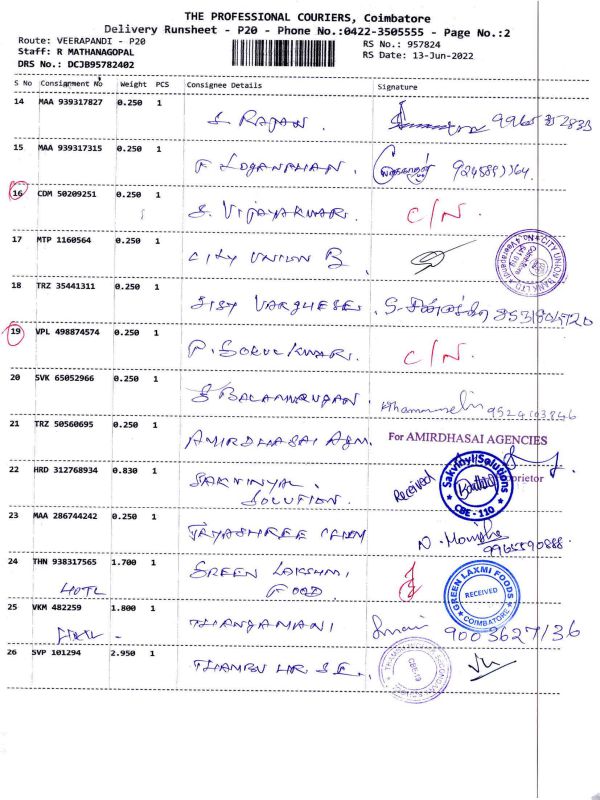 THE PROFESSIONAL COURIERS, Coimbatore
Delivery Runsheet - P20 - Phone No.:0422-3505555 - Page No.:2
Route: VEERAPANDI - P20
Staff: R MATHANAGOPAL
DRS No.: DCJB95782402
RS No.: 957824
RS Date: 13-Jun-2022
S No Consignment No Weight PCS Consignee Details Signature
14 MAA 939317827 0.250 1 S. RAJAN.
15 MAA 939317315 0.250 1
16 CDM 50209251 0.250 1 S. VIJAYAKUMAR. C/N.
17 MTP 1160564 0.250 1 CITY UNION B
CITY UNION BANK LTD.
18 TRZ 35441311 0.250 1 SISY VARGHESE.
19 VPL 498874574 0.250 1 P. GOKULKUMAR. C/N.
20 SVK 65052966 0.250 1 S BALAMURUGAN
21 TRZ 50560695 0.250 1 AMIRDHASAI AGM. For AMIRDHASAI AGENCIES
22 HRD 312768934 0.830 1 SAKVINYAL SOLUTION. Received
Sakvinyl Solutions
CBE - 110
23 MAA 286744242 0.250 1 JAYASHREE CHEM
9965590888.
24 THN 938317565 1.700 1 GREEN LAKSHMI FOOD
HOTL
GREEN LAXMI FOODS
RECEIVED
COIMBATORE
25 VKM 482259 1.800 1 THANGAMANI 9003627136
26 SVP 101294 2.950 1